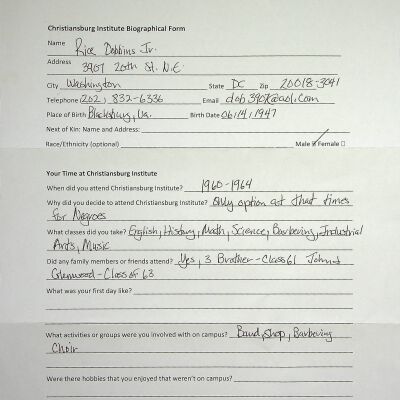 Christiansburg Institute Biographical Form
Name Rice Dobbins Jr.
Address 3907 20th St. N.E.
City Washington State DC Zip 20018-3041
Telephone (202) 832-6336 Email dob3907@aol.com
Place of Birth Blacksburg, Va. Birth Date 06/14/1947
Next of Kin: Name and Address:
Race/Ethnicity (optional) Male Female
Your Time at Christiansburg Institute
When did you attend Christiansburg Institute? 1960-1964
Why did you decide to attend Christiansburg Institute? Only option at that times
for Negroes
What classes did you take? English, History, Math, Science, Barbering, Industrial
Arts, Music
Did any family members or friends attend? Yes, 3 Brother - Class 61 John &
Glenwood - Class of 63
What was your first day like?
What activities or groups were you involved with on campus? Band, Shop, Barbering
Choir
Were there hobbies that you enjoyed that weren't on campus?